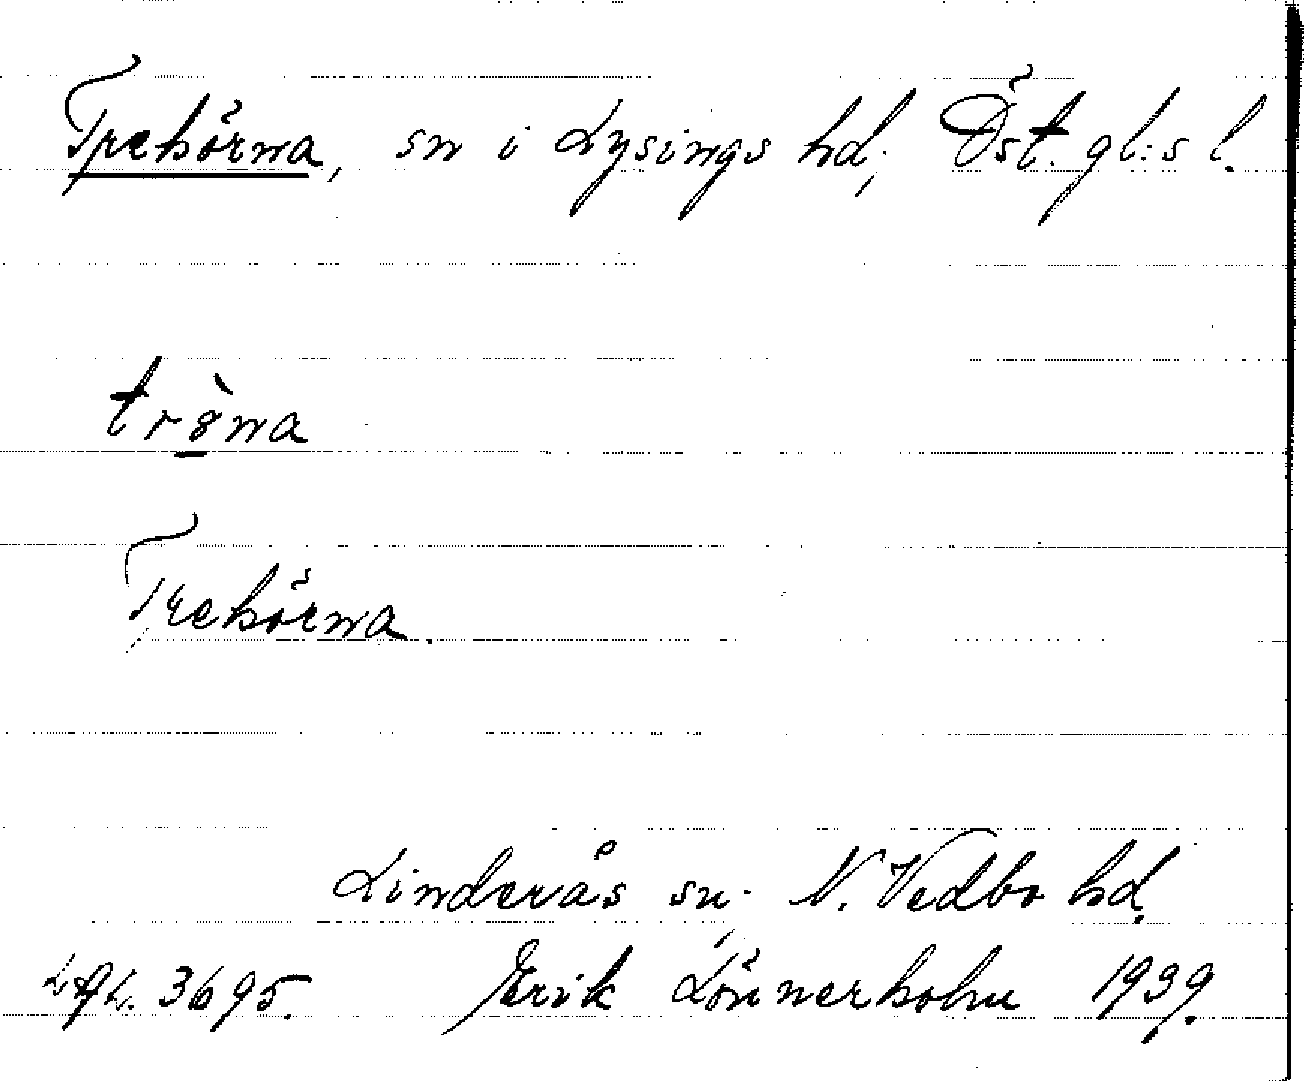 Trehörna, sn i Lysings hd, Öst. gl:s l.
Trehörna
Linderås sn. N. Vedbo hd.
3695. Erik Lönnerholm 1939.